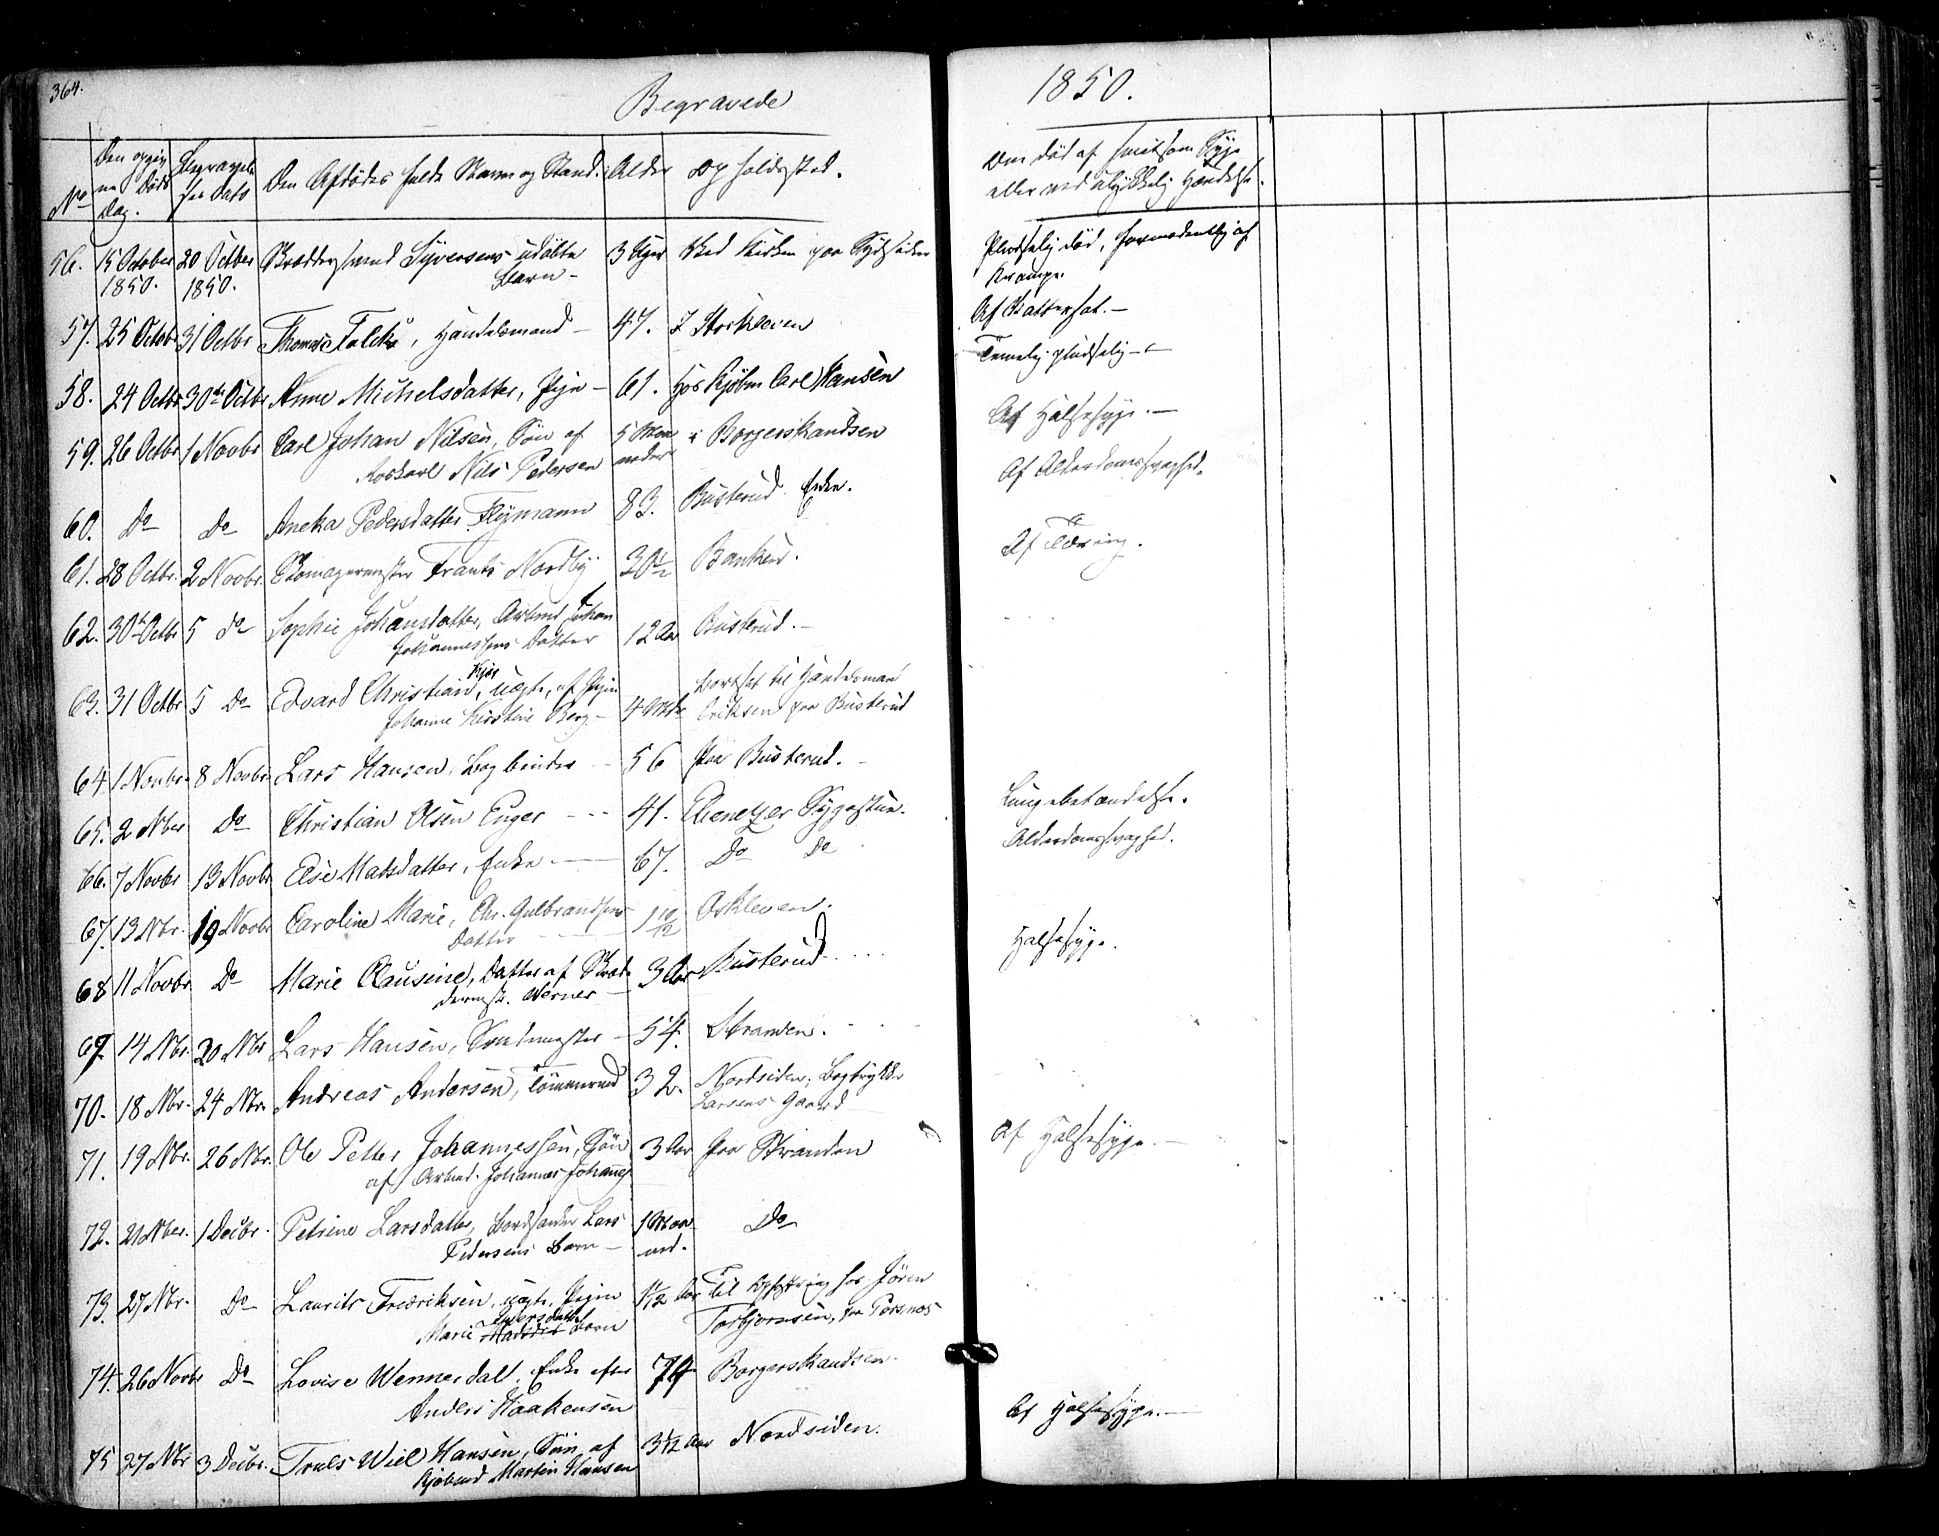 364.
Begravede
1850.
No
Den opgivne Døds Dag.
Begravelsens Dato
Den Afdødes fulde Navn og Stand.
Alder
Opholdssted.
Om død af smitsom Syge
eller ved ulykkelig Hændelse.
56. 15 October 1850. 20 Octber 1850. Syversens udøbte Barn - 3 Uger Ved Kirken paa Sydsiden
Pludselig død, formodentlig af Krampe.
57. 25 Octobr 31 Octbr Thomas Falck, Handelsmand - 47. I Storkleven
Af -
58. 24 Octbr 30te Octbr Anne Michelsdatter, Pige - 61. Hos Kjøbm Carl Hansen
Temelig pludselig -
59. 26 Octbr 1 Novbr Carl Johan Nilsen, Søn af Nils Pedersen 5 Maaneder i Borgerskandsen
Af Halssyge. -
60. Do Do Aneka Pedersdatter Flymann 83. Busterud Enke.
Af Alderdomssvaghed.
61. 28 Octbr. 2 Novbr. Skomagermester Frants Nordby 30 1/2 Banken.
Af Tæring.
62. 30te Octbr 5 Do Sophie Johansdatter, Arbmd Johan Johannessens Datter 12 Aar Busterud. -
63. 31 Octbr 5 Do Edvard Christian, uægte, af Pigen Johanne Kirstine Berg - 4 Mdr bortsat til Handelsmand Eriksen paa Busterud
64. 1 Novbr. 8 Novbr. Lars Hansen, Bogbinder - 56 Paa Busterud. -
65. 2 Nber Do Christian Olsen Enger - - - 41. Ebenetzer Sygestue.
Lungebetændelse.
66. 7 Novbr 13 Novbr Else Matsdatter, Enke. - 67. Do Do
Alderdomssvaghed.
67. 13 Nbr. 19 Novbr Caroline Marie, Chr. Gulbrandsens Datter 1 10/12 Askleven.
68 11 Novbr. Do Marie Clausine, Datter af Skræddermst. Werner - 3 Aar Busterud
Halssyge.
69. 14 Nbr. 20 Nbr Lars Hansen, - 54. Stranden.
70. 18 Nbr. 24 Nbr. Andreas Andersen, Tømmermd 32. Nordsiden, Bogtrykker Larsens Gaard
71. 19 Nbr. 26 Nbr. Ole Petter Johannessen, Søn af Arbmd. Johannes Johannes 3 Aar paa Stranden
Af Halssyge. -
72. 21 Nber. 1 Decbr. Petrine Larsdatter, Lars Pedersens Barn - 1 Maaned. Do
73. 27 Nbr. Do Laurits Fredriksen, uægte, Pigen Marie Iversdatter Barn Aar Til Opfostring hos Jören Torbjornsen, paa Porsnæs
74. 26 Novbr Do Lovise Wennerdal, Enke efter Anders Haakensen 74 Borgerskandsen.
75 27 Nbr 3 Decbr. Truls Wiel Hansen, Søn af Kjøbmd Martin Hansen 3 1/2 Aar Nordsiden.
Af Halssyge. -